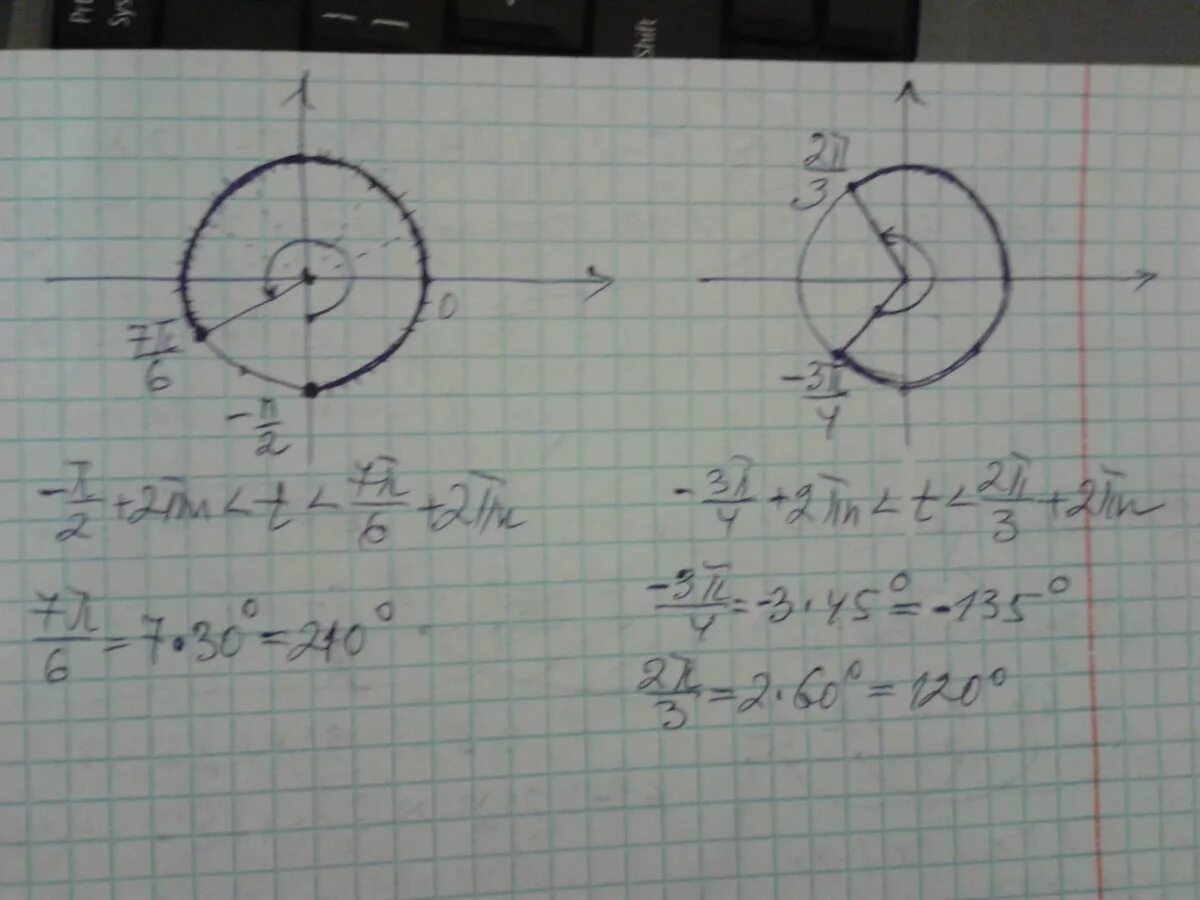 Pr
Sys
Shift
7π/6
-π/2
0
-π/2 + 2πn < t < 7π/6 + 2πn
7π/6 = 7·30° = 210°
2π/3
-3π/4
-3π/4 + 2πn < t < 2π/3 + 2πn
-3π/4 = -3·45° = -135°
2π/3 = 2·60° = 120°